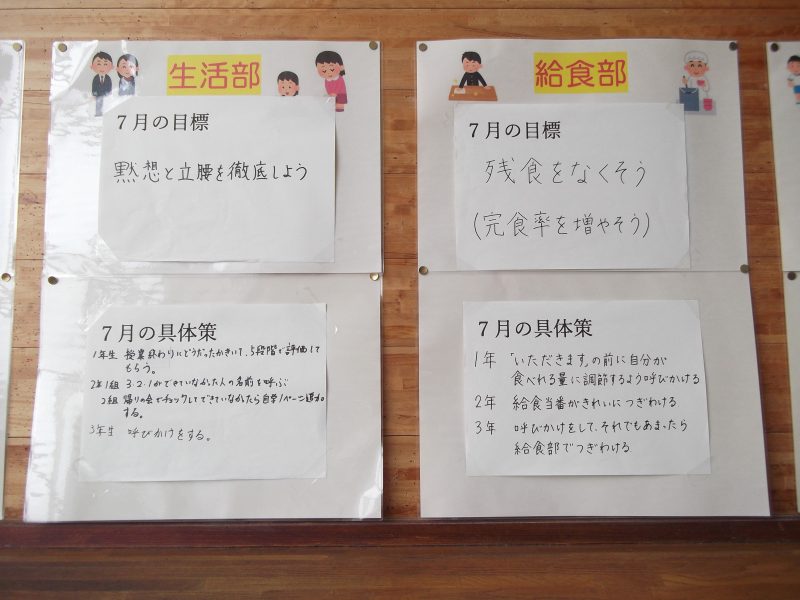 生活部
7月の目標
黙想と立腰を徹底しよう
7月の具体策
1年生 授業終わりにどうだったかきいて、5段階で評価して
もらう。
2年1組 3.2.1ができていなかた人の名前を呼ぶ
2組 帰りの会でチェックしてできていなかたら自学1ページ追加
する。
3年生 呼びかけをする。
給食部
7月の目標
残食をなくそう
(完食率を増やそう)
7月の具体策
1年 「いただきます」の前に自分が
食べれる量に調節するよう呼びかける
2年 給食当番がきれいにつぎわける
3年 呼びかけをして、それでもあまったら
給食部でつぎわける